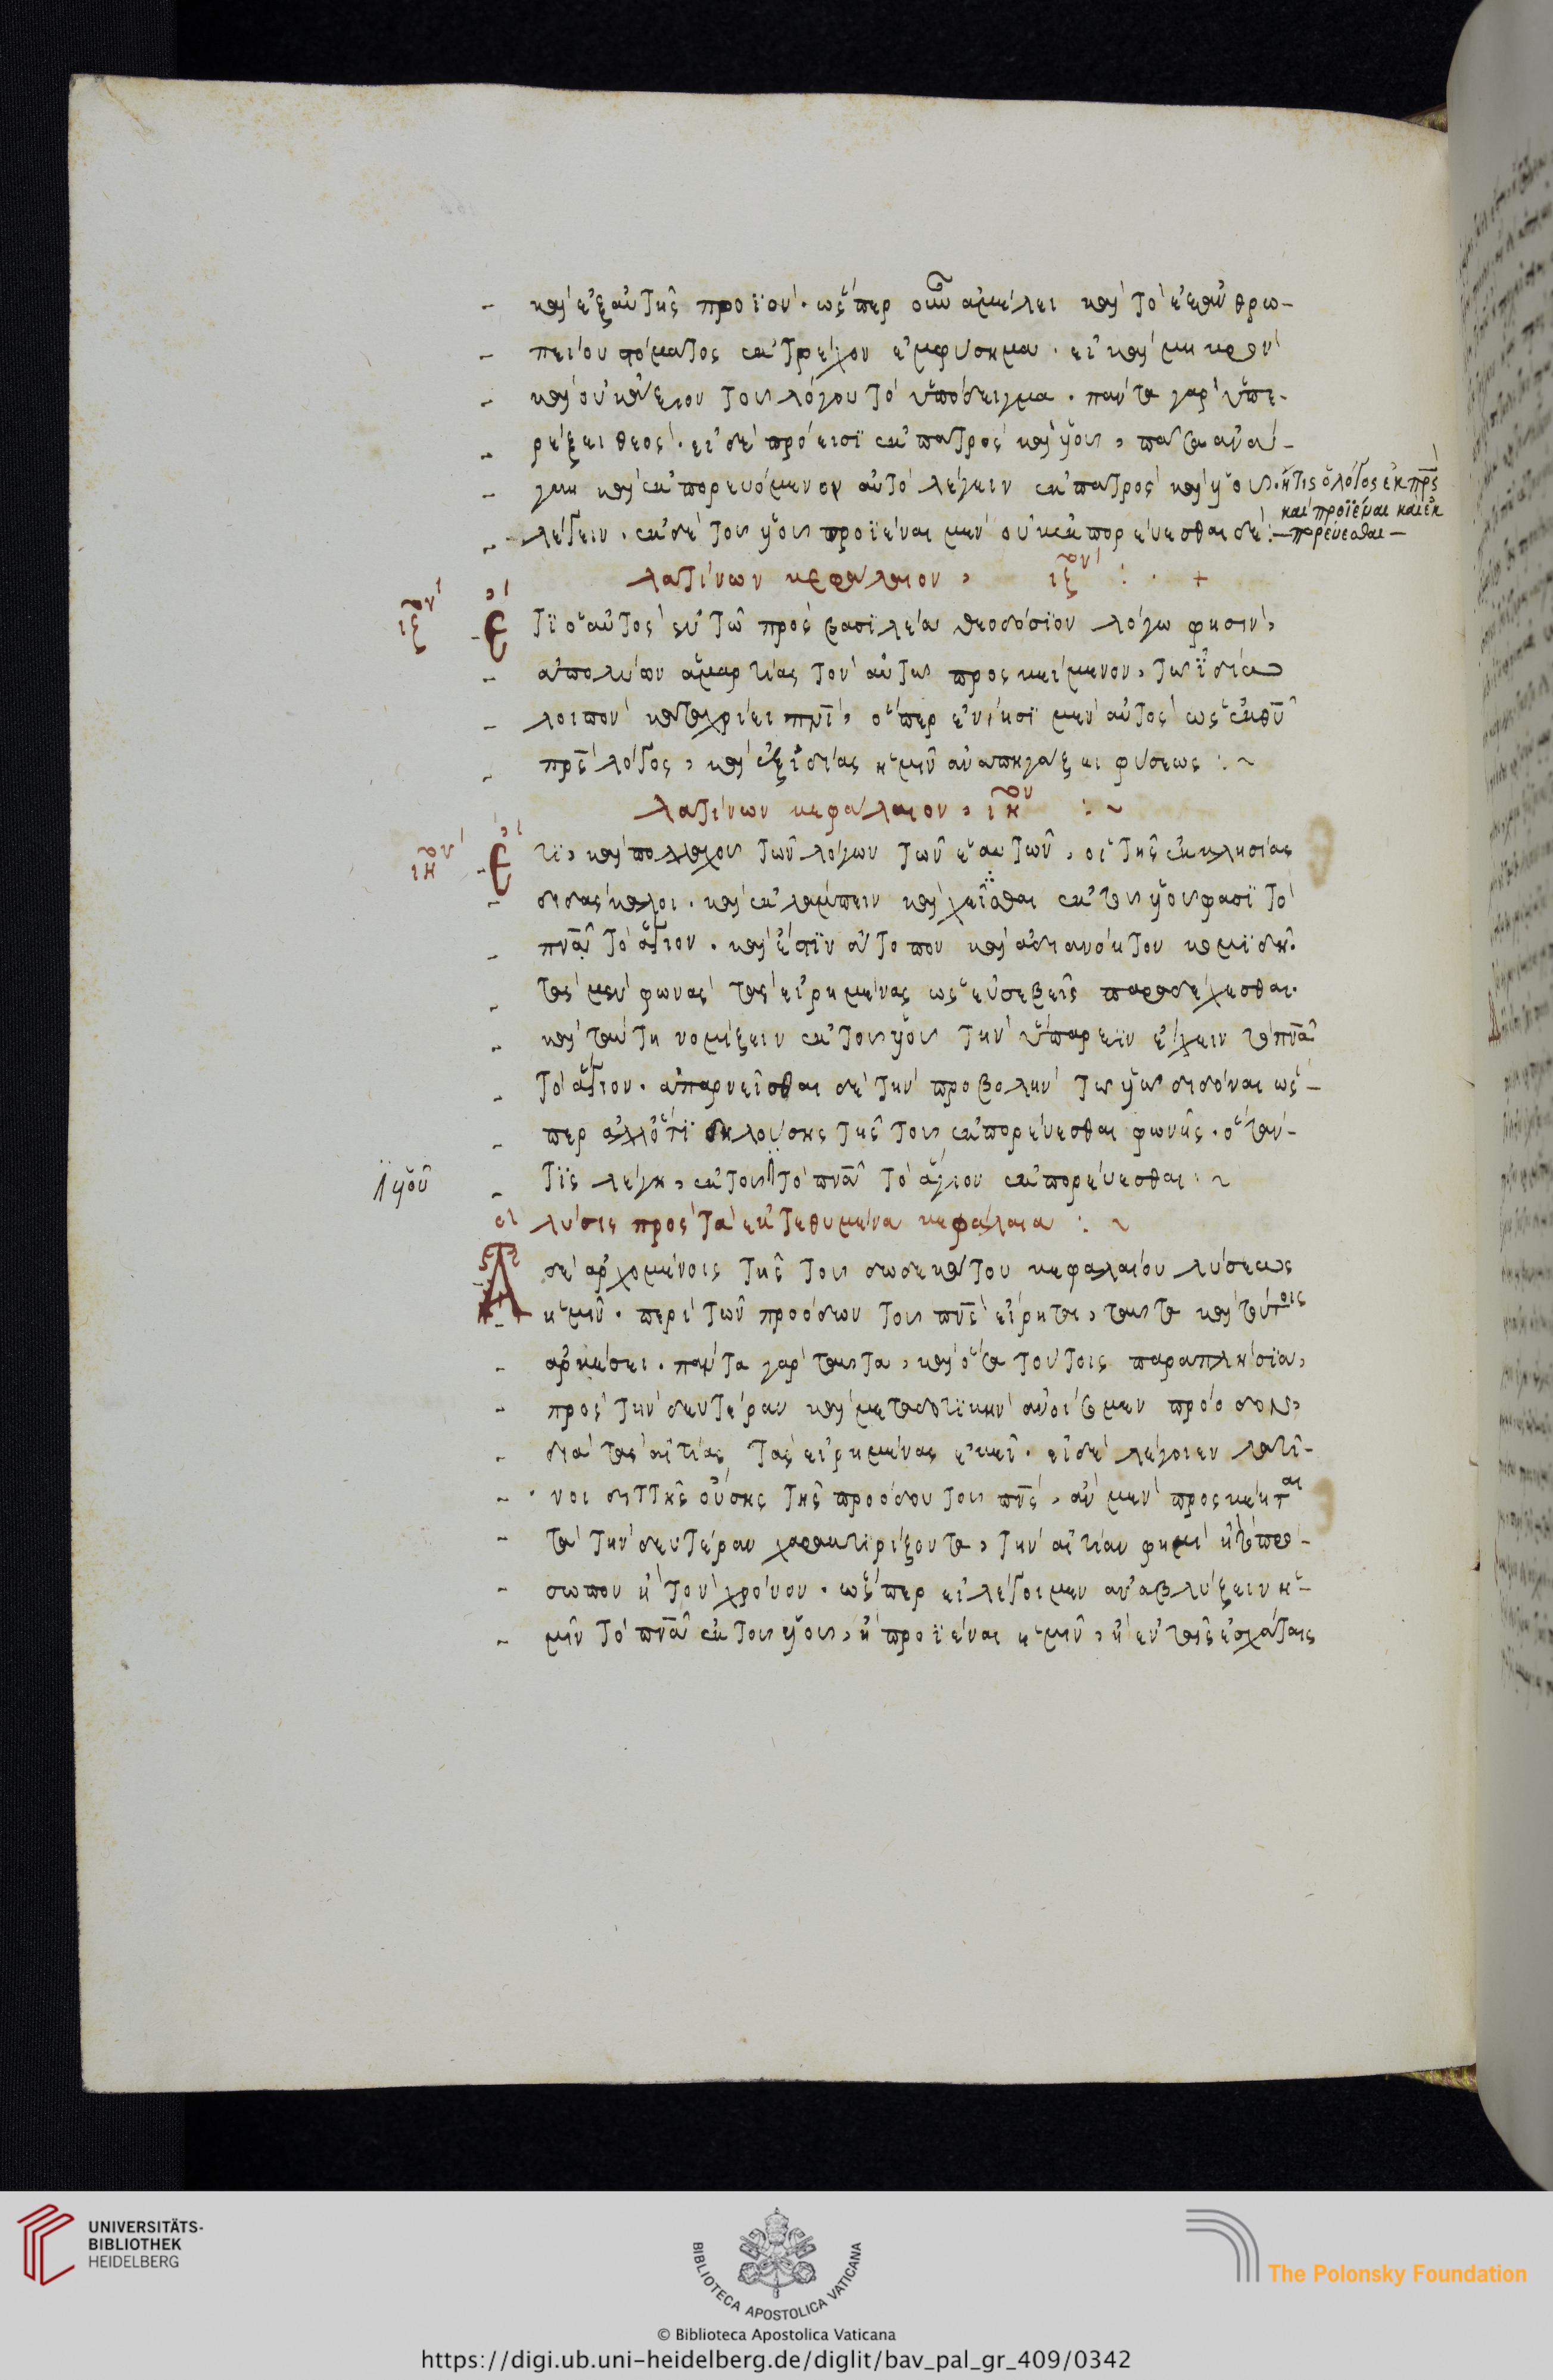 καὶ ἐξ αὐτῆς προϊόν· ὥσπερ οὖν ἀμέλει καὶ τὸ ἐξ ἀνθρω-
πείου στόματος ἐκτρέχον ἐμφύσημα· εἰ καὶ μικρὸν
καὶ οὐκ ἄξιον τοῦ λόγου τὸ ὑπόδειγμα· πάντα γὰρ ὑπε-
ρέξει θεός· εἰ δὲ πρόεισι ἐκ πατρὸς καὶ υἱοῦ, πᾶσα ἀνά-
γκη καὶ ἐκπορευόμενον αὐτὸ λέγειν ἐκ πατρὸς καὶ υἱοῦ· ἤ τις ὁ λόγος ἐκ πρς
καὶ προϊέναι καὶ ἐκ
πορεύεσθαι
λέγειν· ἐκ δὲ τοῦ υἱοῦ προϊέναι μὲν οὐκ ἐκπορεύεσθαι δέ:
λατίνων κεφάλαιον, ιζον : · +
ιζον Ἔτι ὁ αὐτὸς ἐν τῷ πρὸς βασιλέα θεοδόσιον λόγω φησίν,
ἀπολύων ἁμαρτίας τὸν αὐτῷ προσκείμενον, τῷ ἰδίω
λοιπὸν καταχρίει πνι, ὅπερ ἐνίησι μὲν αὐτὸς ὡς ἐκ θυ
πρς λόγος, καὶ ἐξ ἰδίας ἡμῖν ἀναπηγάζει φύσεως : ~
λατίνων κεφάλαιον, ιηον : ~
ιηον Ἔτι, καὶ πολλαχοῦ τῶν λόγων τῶν ἑαυτῶν, οἱ τῆς ἐκκλησίας
διδάσκαλοι· καὶ ἐκλάμπειν καὶ χεῖσθαι ἐκ τοῦ υἱοῦ φασι τὸ
πνα τὸ ἅγιον· καὶ ἔστιν ἄτοπον καὶ ἀδιανόητον κομιδῆ·
τὰς μὲν φωνὰς τὰς εἰρημένας ὡς εὐσεβεῖς παραδέχεσθαι·
καὶ ταύτη νομίζειν ἐκ τοῦ υἱοῦ τὴν ὕπαρξιν ἔχειν τὸ πνα
τὸ ἅγιον· ἀπαρνεῖσθαι δὲ τὴν προβολὴν τῷ υἱῷ διδόναι ὥσ-
περ ἄλλό τι δηλούσης τῆς τοῦ ἐκπορεύεσθαι φωνῆς· ὅταν-
τις λέγη, ἐκ τοῦ τὸ πνα τὸ ἅγιον ἐκπορεύεσθαι : ~
υἱοῦ
λύσις πρὸς τὰ ἐκτεθημένα κεφάλαια : ~
Ἃ δὲ ἀρχομένοις τῆς τοῦ δωδεκάτου κεφαλαίου λύσεως
ἡμῖν· περὶ τῶν προόδων τοῦ πνς εἴρηται, ταῦτα καὶ τούτοις
ἀρκέσει· πάντα γὰρ ταῦτα, καὶ ὅσα τούτοις παραπλήσια,
πρὸς τὴν δευτέραν καὶ μεταδοτικὴν ἀνοίσομεν πρόοδον,
διὰ τὰς αἰτίας τὰς εἰρημένας ἐκεῖ· εἰ δὲ λέγοιεν λατῖ-
νοι διττῆς οὔσης τῆς προόδου τοῦ πνς, ἂν μὲν προσκέηται
τὰ τὴν δευτέραν χαρακτιρίζοντα, τὴν αἰτίαν φημὶ ἢ τὸ πρό-
σωπον ἢ τὸν χρόνον· ὥσπερ εἰ λέγοιμεν ἀναβλύζειν ἡ-
μῖν τὸ πνα ἐκ τοῦ υἱοῦ, ἢ προϊέναι ἡμῖν, ἢ ἐν ταῖς ἐσχάταις
UNIVERSITÄTS-
BIBLIOTHEK
HEIDELBERG
BIBLIOTECA APOSTOLICA VATICANA
The Polonsky Foundation
© Biblioteca Apostolica Vaticana
https://digi.ub.uni-heidelberg.de/diglit/bav_pal_gr_409/0342